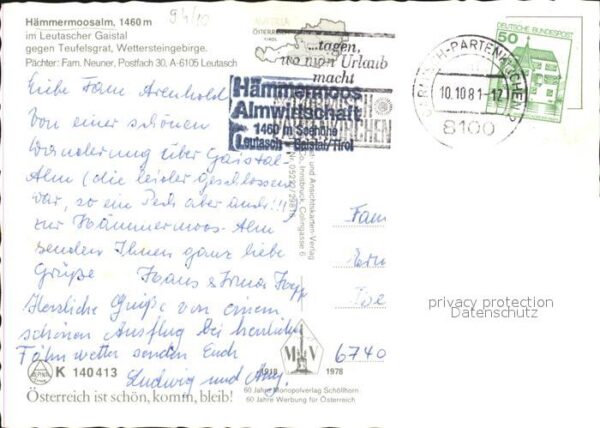 Hämmermoosalm, 1460 m
im Leutascher Gaistal
gegen Teufelsgrat, Wettersteingebirge.
Pächter: Fam. Neuner, Postfach 30, A-6105 Leutasch
94/10
TIROL
...tagen,
wo man Urlaub
macht
GARMISCH-PARTENKIRCHEN
10.10.81-12
8100
DEUTSCHE BUNDESPOST
50
Hämmermoos
Almwirtschaft
1460 m Seehöhe
Leutasch - Gaistal/Tirol
Liebe Fam. Arenhold
Von einer schönen
Wanderung über Gaistal
Alm (die leider geschlossen
war, so ein Pech aber auch!!!)
zur Hämmermoos-Alm
senden Ihnen ganz liebe
Grüße Hans & Irma
Herzliche Grüße von einem
schönen Ausflug bei herrlichem
Föhnwetter senden Euch
Ludwig und
Fam
6740
K 140 413
Österreich ist schön, komm, bleib!
1918 1978
60 Jahre Monopolverlag Schöllhorn
60 Jahre Werbung für Österreich
- und Ansichtskarten-Verlag
Co, Innsbruck, Colingasse 6
privacy protection
Datenschutz